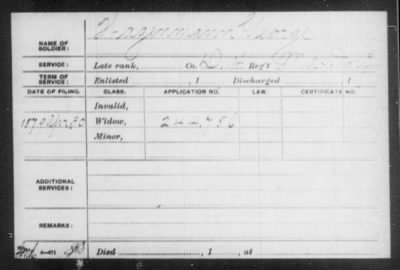 NAME OF SOLDIER: Wagenmann George
SERVICE: Late rank, Co. D. 4 Reg't
TERM OF SERVICE: Enlisted , 1 Discharged , 1
DATE OF FILING. CLASS. APPLICATION NO. LAW. CERTIFICATE NO.
Invalid,
1879 Widow, 244,786
Minor,
ADDITIONAL SERVICES:
REMARKS:
Died , 1 , at